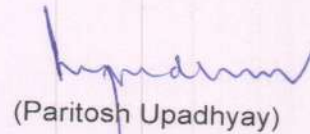 (Paritosh Upadhyay)